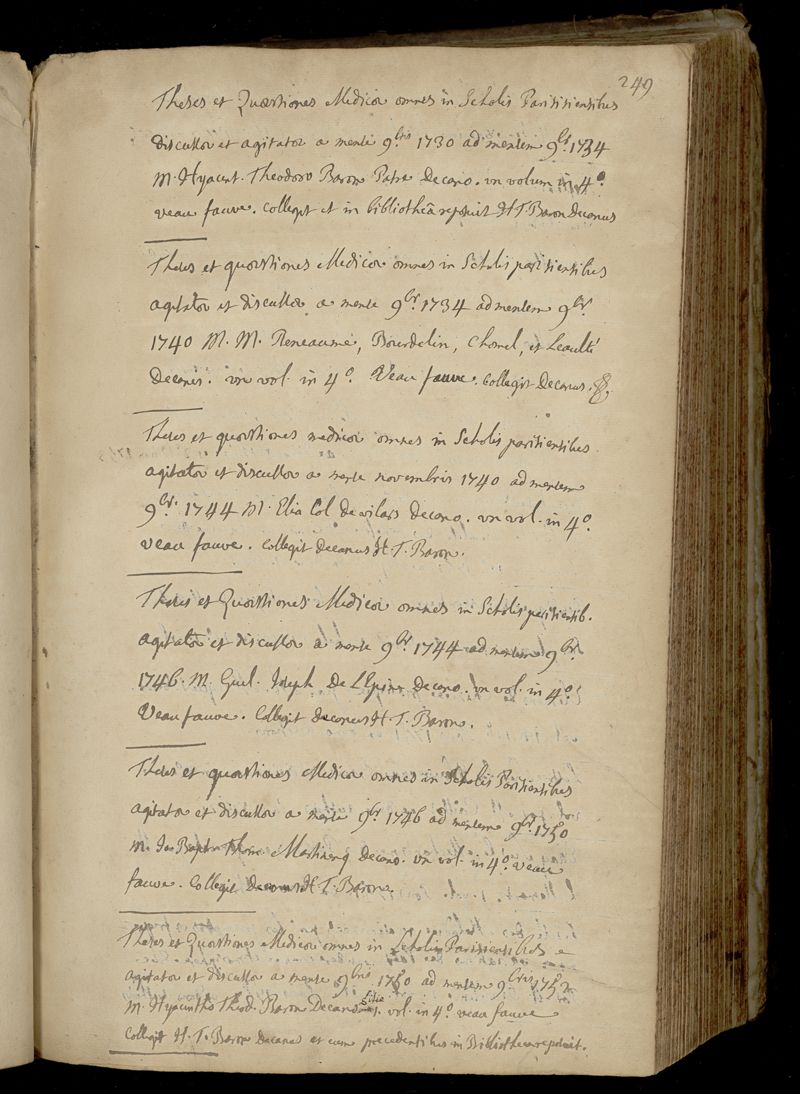 249
Theses et Quæstiones Medicæ omnes in Scholis Parisiensibus
discussæ et agitatæ a mense 9.bris 1730 ad mensem 9.bs 1734
M. Hyacint. Theodoro Baron Patre Decano. un volum in 4.o
veau fauve. Collegit et in bibliothecâ reposuit H T. Baron Decanus
Theses et quæstiones Medicæ omnes in Scholis parisiensibus
agitatæ et discussæ a mense 9.br. 1734 ad mensem 9.br.
1740 M. M. Reneaume, Bourdelin, Chomel, et Leaulté
Decanis. un vol. in 4.o Veau fauve. Collegit Decanus. B.
Theses et quæstiones medicæ omnes in Scholis parisiensibus
agitatæ et discussæ a mense novembris 1740 ad mensem
9.br. 1744 M. Elia Col de vilars Decano. un vol. in 4.o
veau fauve. Collegit Decanus H T. Baron.
Theses et Quæstiones Medicæ omnes in Scholis parisiensib.
agitatæ et discussæ a mense 9.br 1744 ad mensem 9.br.
1746. M. Guil. Joseph De L'Epine Decano. un vol. in 4.o
Veau fauve. Collegit decanus H. T. Baron.
Theses et quæstiones Medicæ omnes in Scholis Parisiensibus
agitatæ et discussæ a mense 9.br 1746 ad mensem 9.br 1750
M. Jo Bapta Thoma Martinenq Decano. un vol. in 4.o veau
fauve. Collegit Decanus H T. Baron
Theses et Quæstiones Medicæ omnes in Scholis Parisiensibus
agitatæ et discussæ a mense 9.bris 1750 ad mensem 9.bris 1752
M. Hyacintho Theod. Baron Decano filio vol. in 4.o veau fauve
Collegit H. T. Baron Decanus et cum precedentibus in Bibliotheca reposuit.